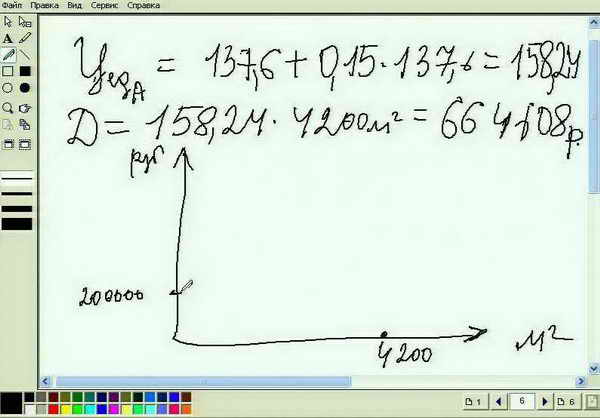 Файл Правка Вид Сервис Справка
Цед A = 137,6 + 0,15 · 137,6 = 158,24
D = 158,24 · 4200 м² = 664608 р.
руб
200000
4200
м²
1
6
6